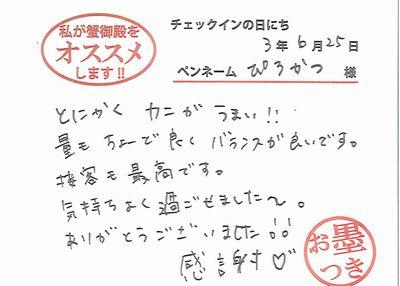 私が蟹御殿を
オススメ
します!!
チェックインの日にち
3年6月25日
ペンネーム ぴろかつ 様
とにかく カニが うまい!!
量も ちょーで良く バランスが良いです。
接客も最高です。
気持ちよく過ごせました〜。
ありがとうございました!!
感謝♡
お墨
つき